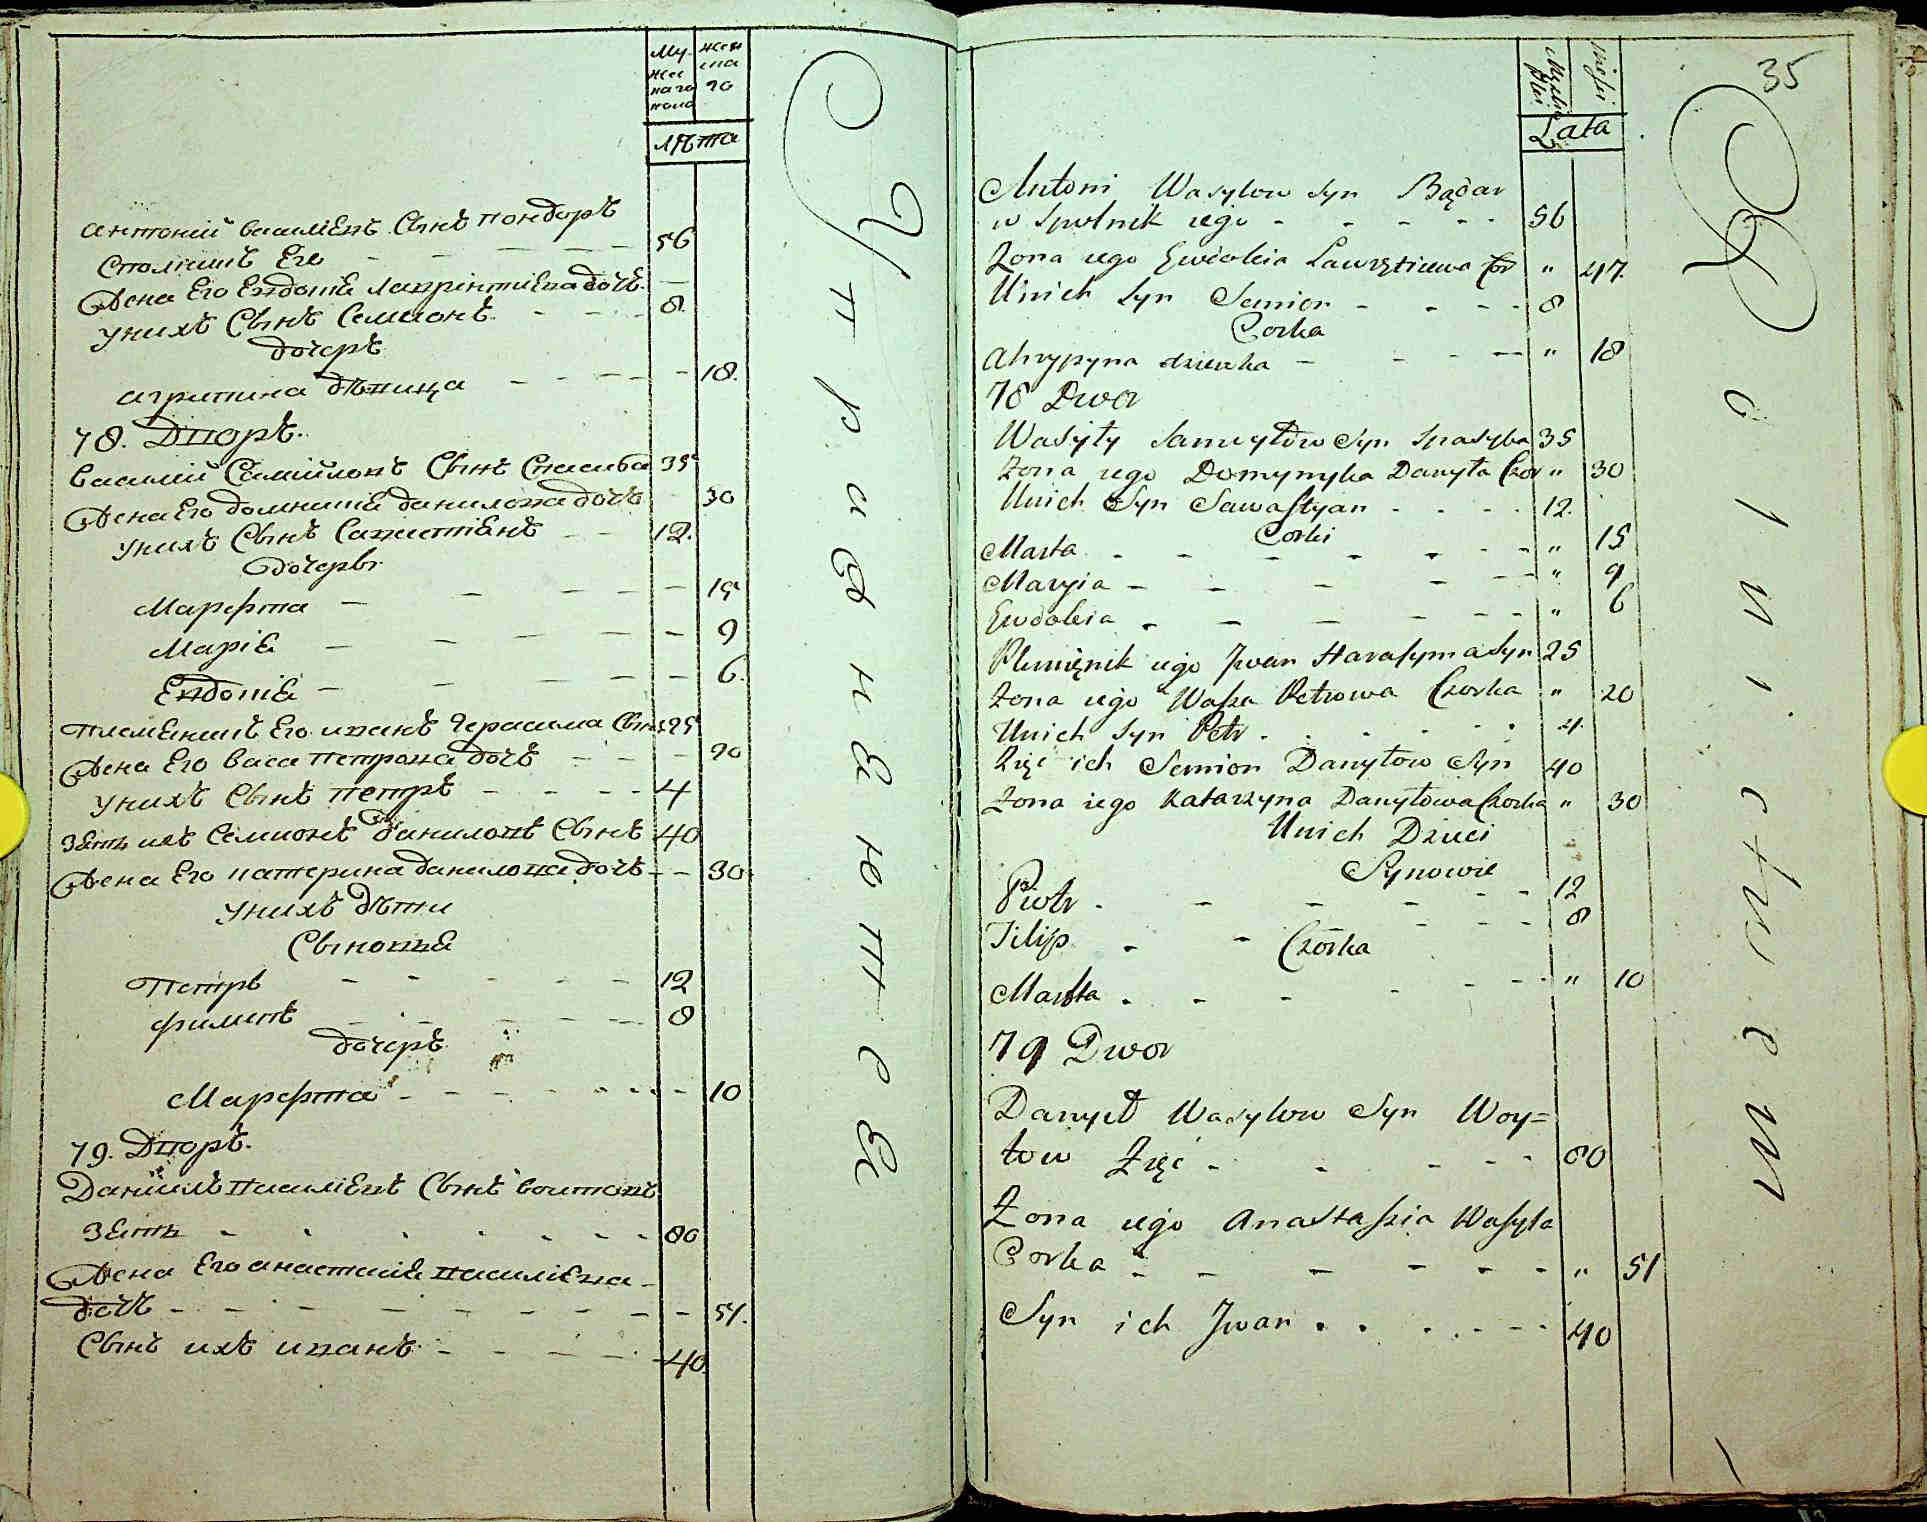 Му-
жес
наго
пола
жен
ска
го
лѣта
антоній василіевъ Сынъ пондоръ
Сполникъ Его 56
Жена Его Евдокіѣ лаврѣнтиева дочъ.
унихъ Сынъ Семионъ 8.
дочеръ
агрипина дѣвица 18.
78. Дворъ.
василий Самийловъ Сынъ Спасиба 35
Жена Его домникиѣ данилова дочъ 30
унихъ Сынъ Савистіѣнъ 12.
дочеры
Марфта 15
Маріѣ 9
Евдокіѣ 6.
племѣникъ Его иванъ герасима Сынъ 25
Жена Его васа петрова дочъ 20
унихъ Сынъ петръ 4
зѣть ихъ Семионъ даниловъ Сынъ 40
Жена Его катерина данилова дочъ 30
унихъ дѣти
Сыновиѣ
Петръ 12
филипъ 8
дочеръ
Марфта 10
79. Дворъ.
Даниилъ василіевъ Сынъ воитовъ
зѣть 80
Жена Его анастасиѣ василіева
дочъ 51.
Сынъ ихъ иванъ 40
Управнѣюшеѣ
35
Męskiei
płci
Lata
Antoni Wasylow syn Bądar
w spolnik iego 56
Zona iego Ewdokia Lawrętiewa Cor " 47
Unich syn Semion 8
Corka
Ahrypyna dziewka " 18
78 Dwor
Wasyły Samuyłow Syn Spasyba 35
Zona iego Domynyka Danyła Czor " 30
Unich Syn Sawastyan 12.
Corki
Marta " 15
Maryia " 9
Ewdokia " 6
Plemięnik iego Jwan Harasyma Syn 25
Zona iego Wasza Petrowa Czorka " 20
Unich syn Petr 4.
Zięć ich Semion Danyłow Syn 40
Zona iego Katarzyna Danyłowa Czorka " 30
Unich Dzieci
Synowie
Piotr 12
Filip 8
Czorka
Marta " 10
79 Dwor
Danyił Wasylow Syn Woy=
tow Zięć 80
Zona iego Anastaszia Wasyla
Corka " 51
Syn ich Jwan 40